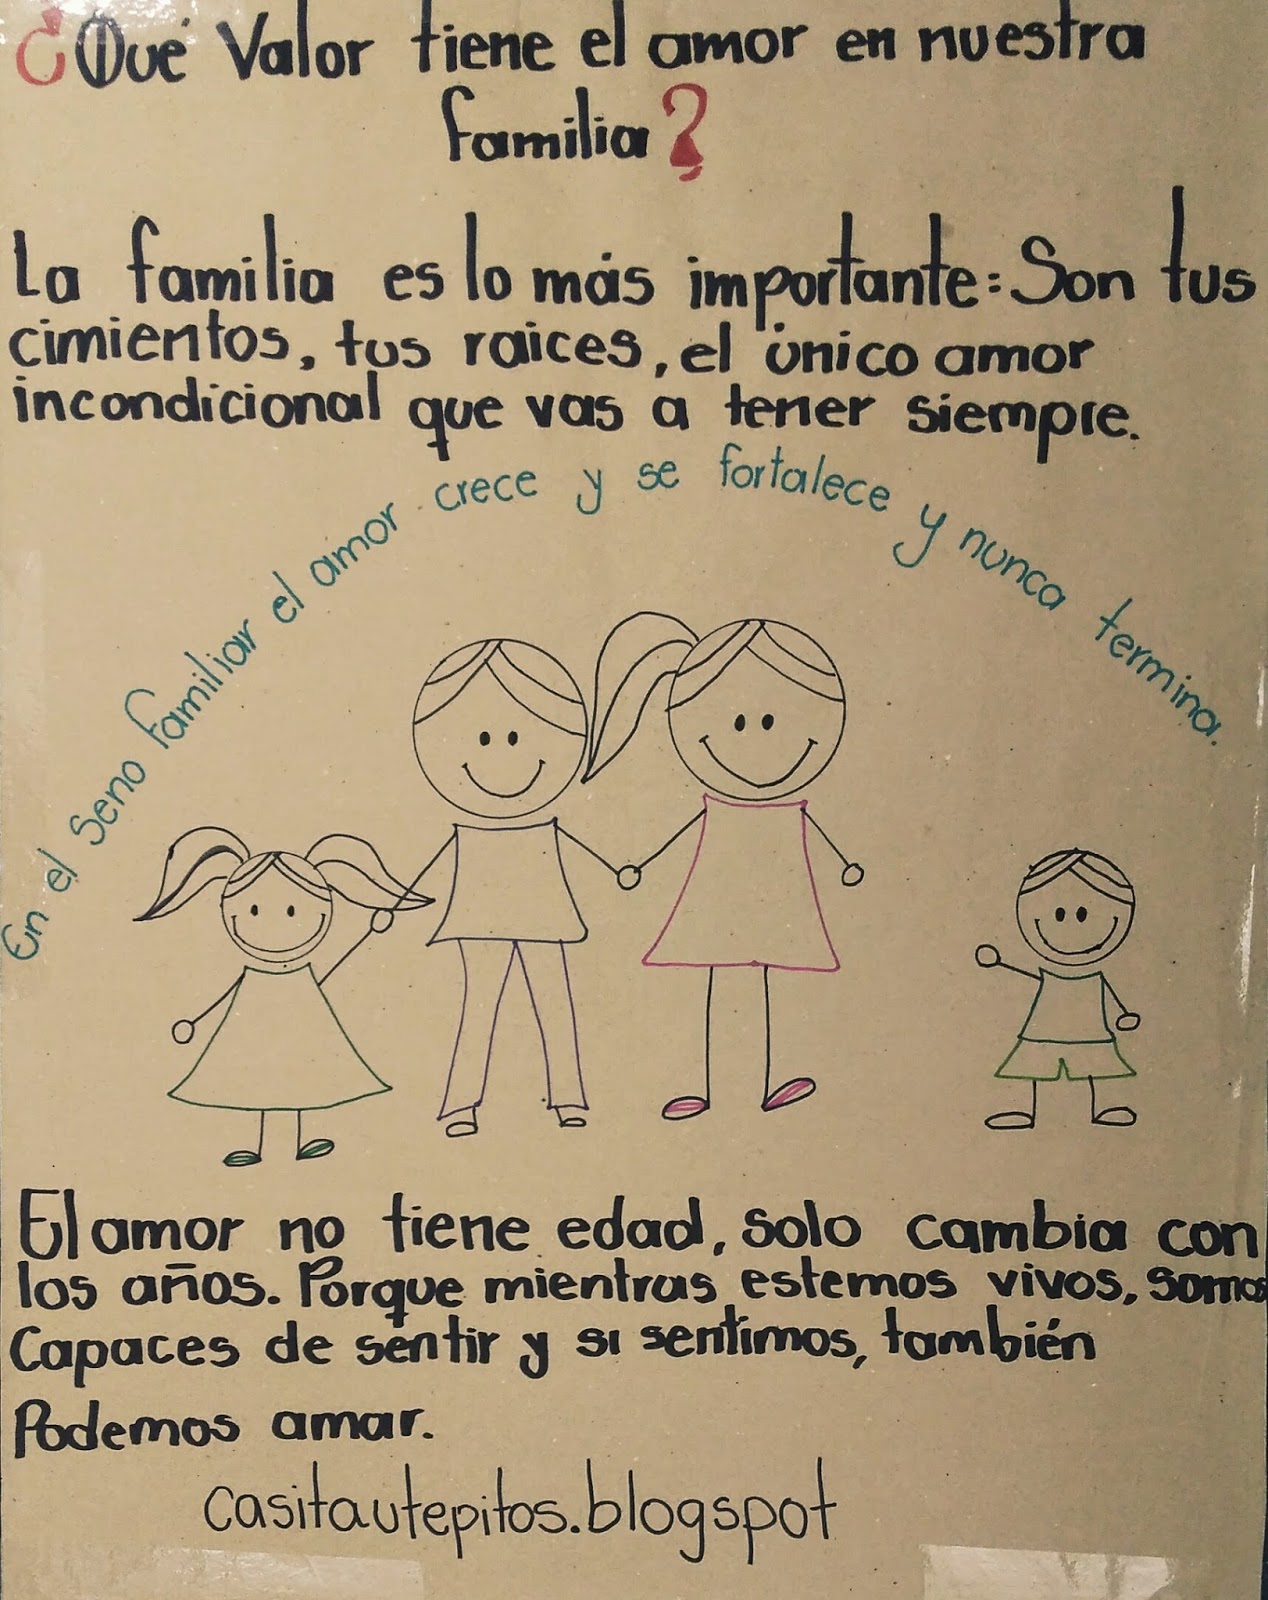 ¿Qué Valor tiene el amor en nuestra
familia?
La familia es lo más importante: Son tus
cimientos, tus raices, el único amor
incondicional que vas a tener siempre.
En el seno familiar el amor crece y se fortalece y nunca termina.
El amor no tiene edad, solo cambia con
los años. Porque mientras estemos vivos, somos
Capaces de sentir y si sentimos, también
Podemos amar.
casitautepitos.blogspot